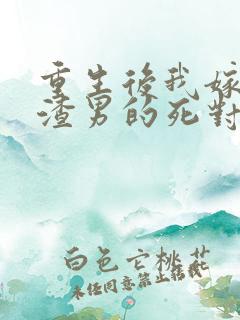 重生後我嫁
渣男的死對
白色亡桃花
未经同意禁止转载